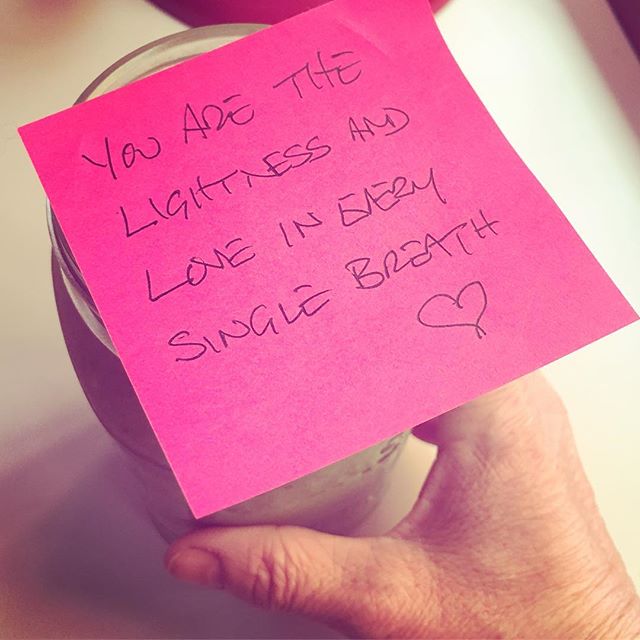 YOU ARE THE
LIGHTNESS AND
LOVE IN EVERY
SINGLE BREATH